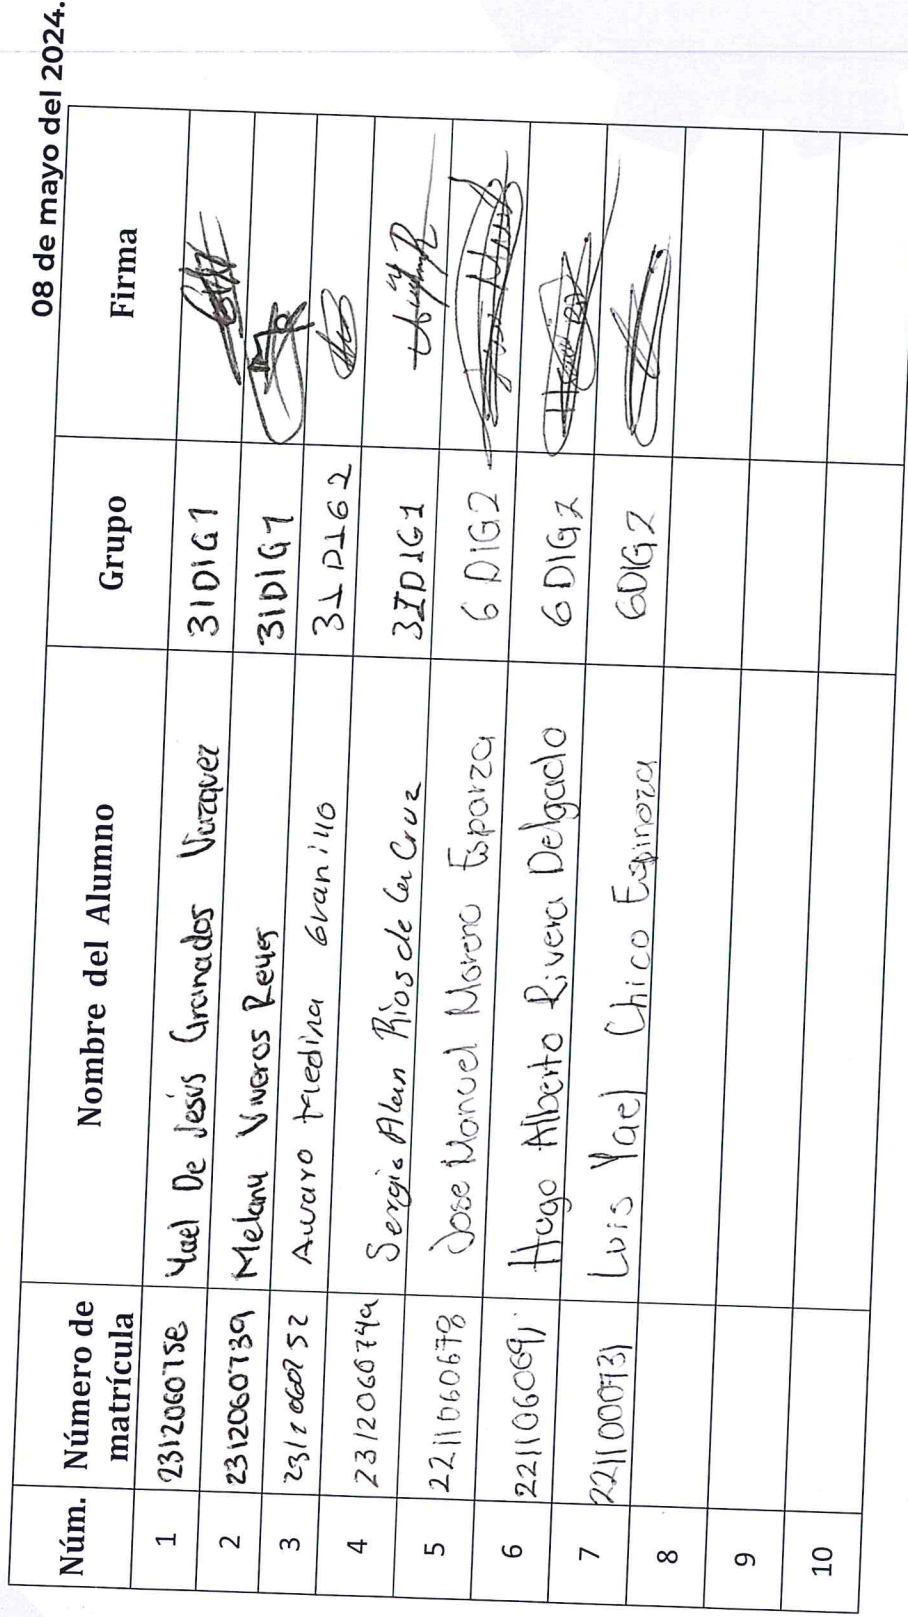 08 de mayo del 2024.
Núm. Número de matrícula Nombre del Alumno Grupo Firma
1 231206075e Yael De Jesús Granados Vazquez 3IDIG1
2 2312060739 Melany Viveros Reyes 3IDIG1
3 2312060752 Alvaro Medina Granillo 3IDIG2
4 2312060749 Sergio Alan Rios de la Cruz 3IDIG1
5 2211060678 Jose Manuel Moreno Esparza 6 DIG2
6 2211060691 Hugo Alberto Rivera Delgado 6 DIG2
7 221100731 Luis Yael Chico Espinoza 6DIG2
8
9
10